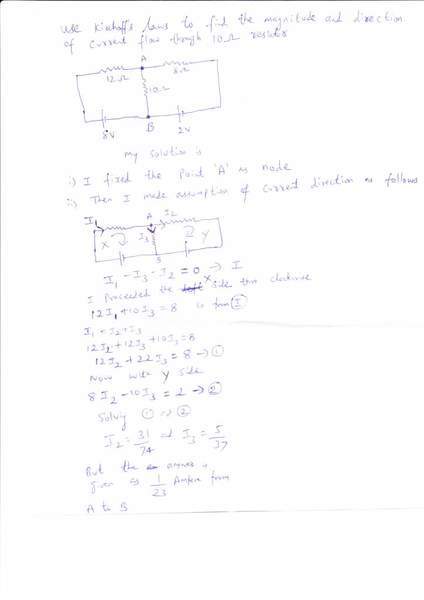 Use Kirchoff's laws to find the magnitude and direction
of current flow through 10Ω resistor
A
12Ω
8Ω
10Ω
8V
B
2V
my solution is
i) I fixed the point 'A' as node
ii) Then I made assumption of current direction as follows
I1 A I2
X I3 Y
B
I1 - I3 - I2 = 0 → I
I proceeded the X side thro clockwise
12I1 + 10I3 = 8 is from I
I1 = I2 + I3
12I2 + 12I3 + 10I3 = 8
12I2 + 22I3 = 8 → ①
Now with Y side
8I2 - 10I3 = 2 → ②
Solving ① ②
I2 = 31/74 I3 = 5/37
But the answer is
given as 1/23 Ampere from
A to B